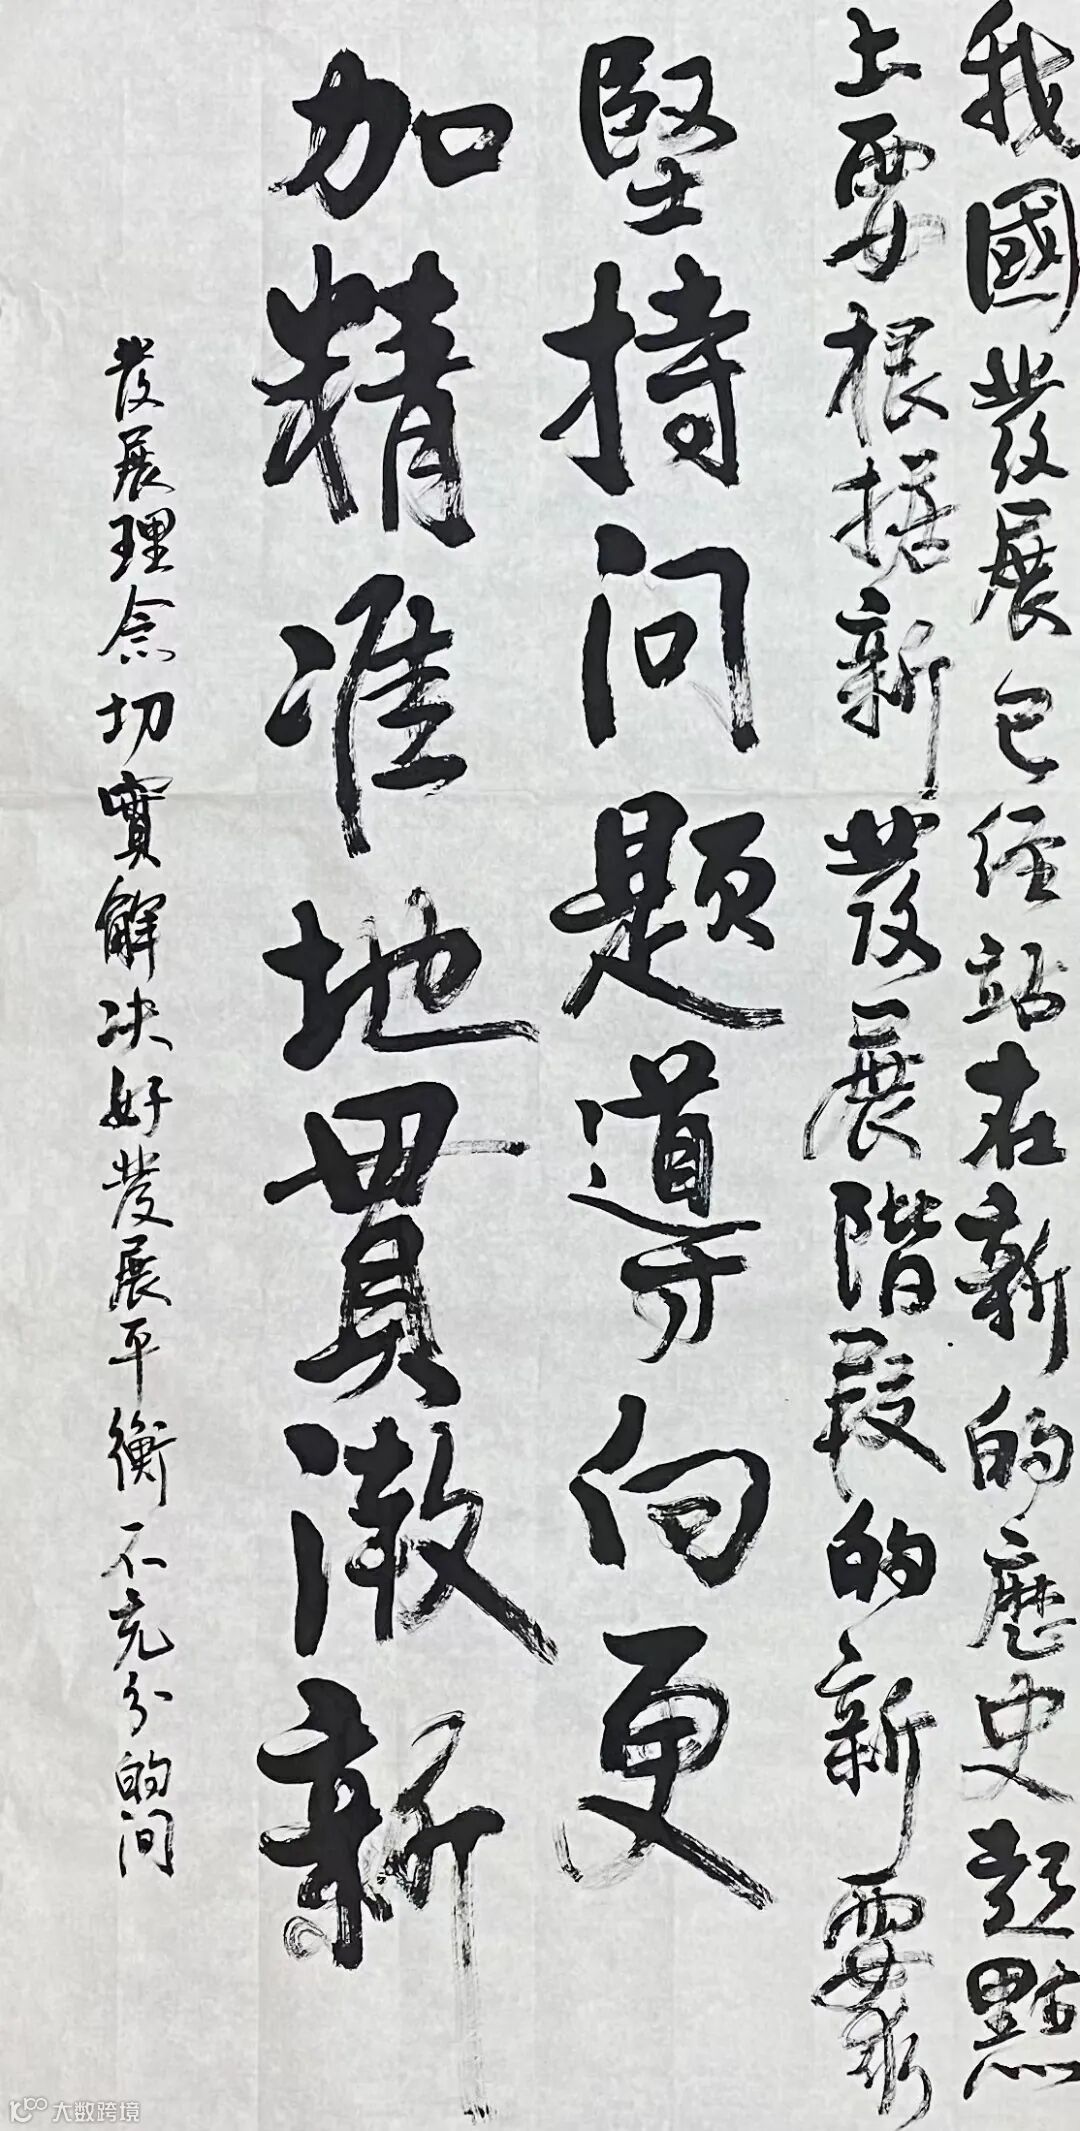 我國發展已经站在新的歷史起點
上要根据新發展階段的新要求
堅持问题導向更
加精准地貫澈新
發展理念切實解决好發展平衡不充分的问
大数跨境